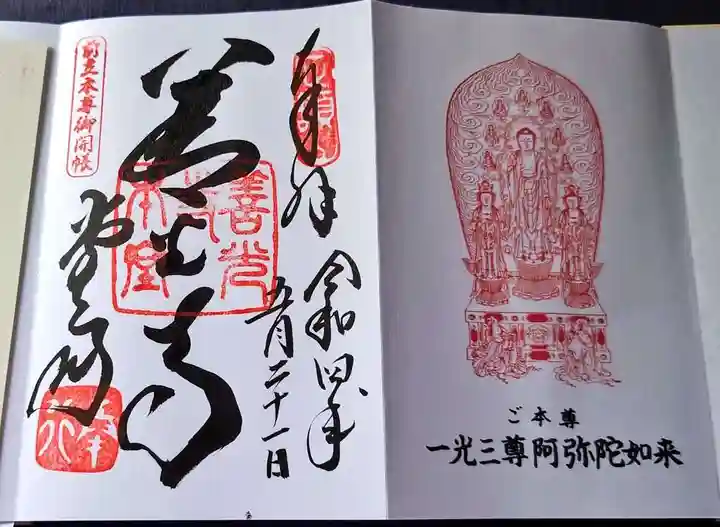 奉拝
令和四年
五月二十一日
善光寺
善光寺本堂
前立本尊御開帳
ご本尊
一光三尊阿弥陀如来